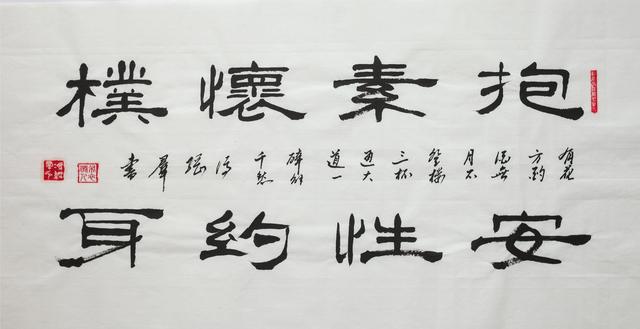 抱素懷樸
有花
方酌
酒無
月不
登樓
三杯
通大
道一
醉解
千愁
書
安性約耳